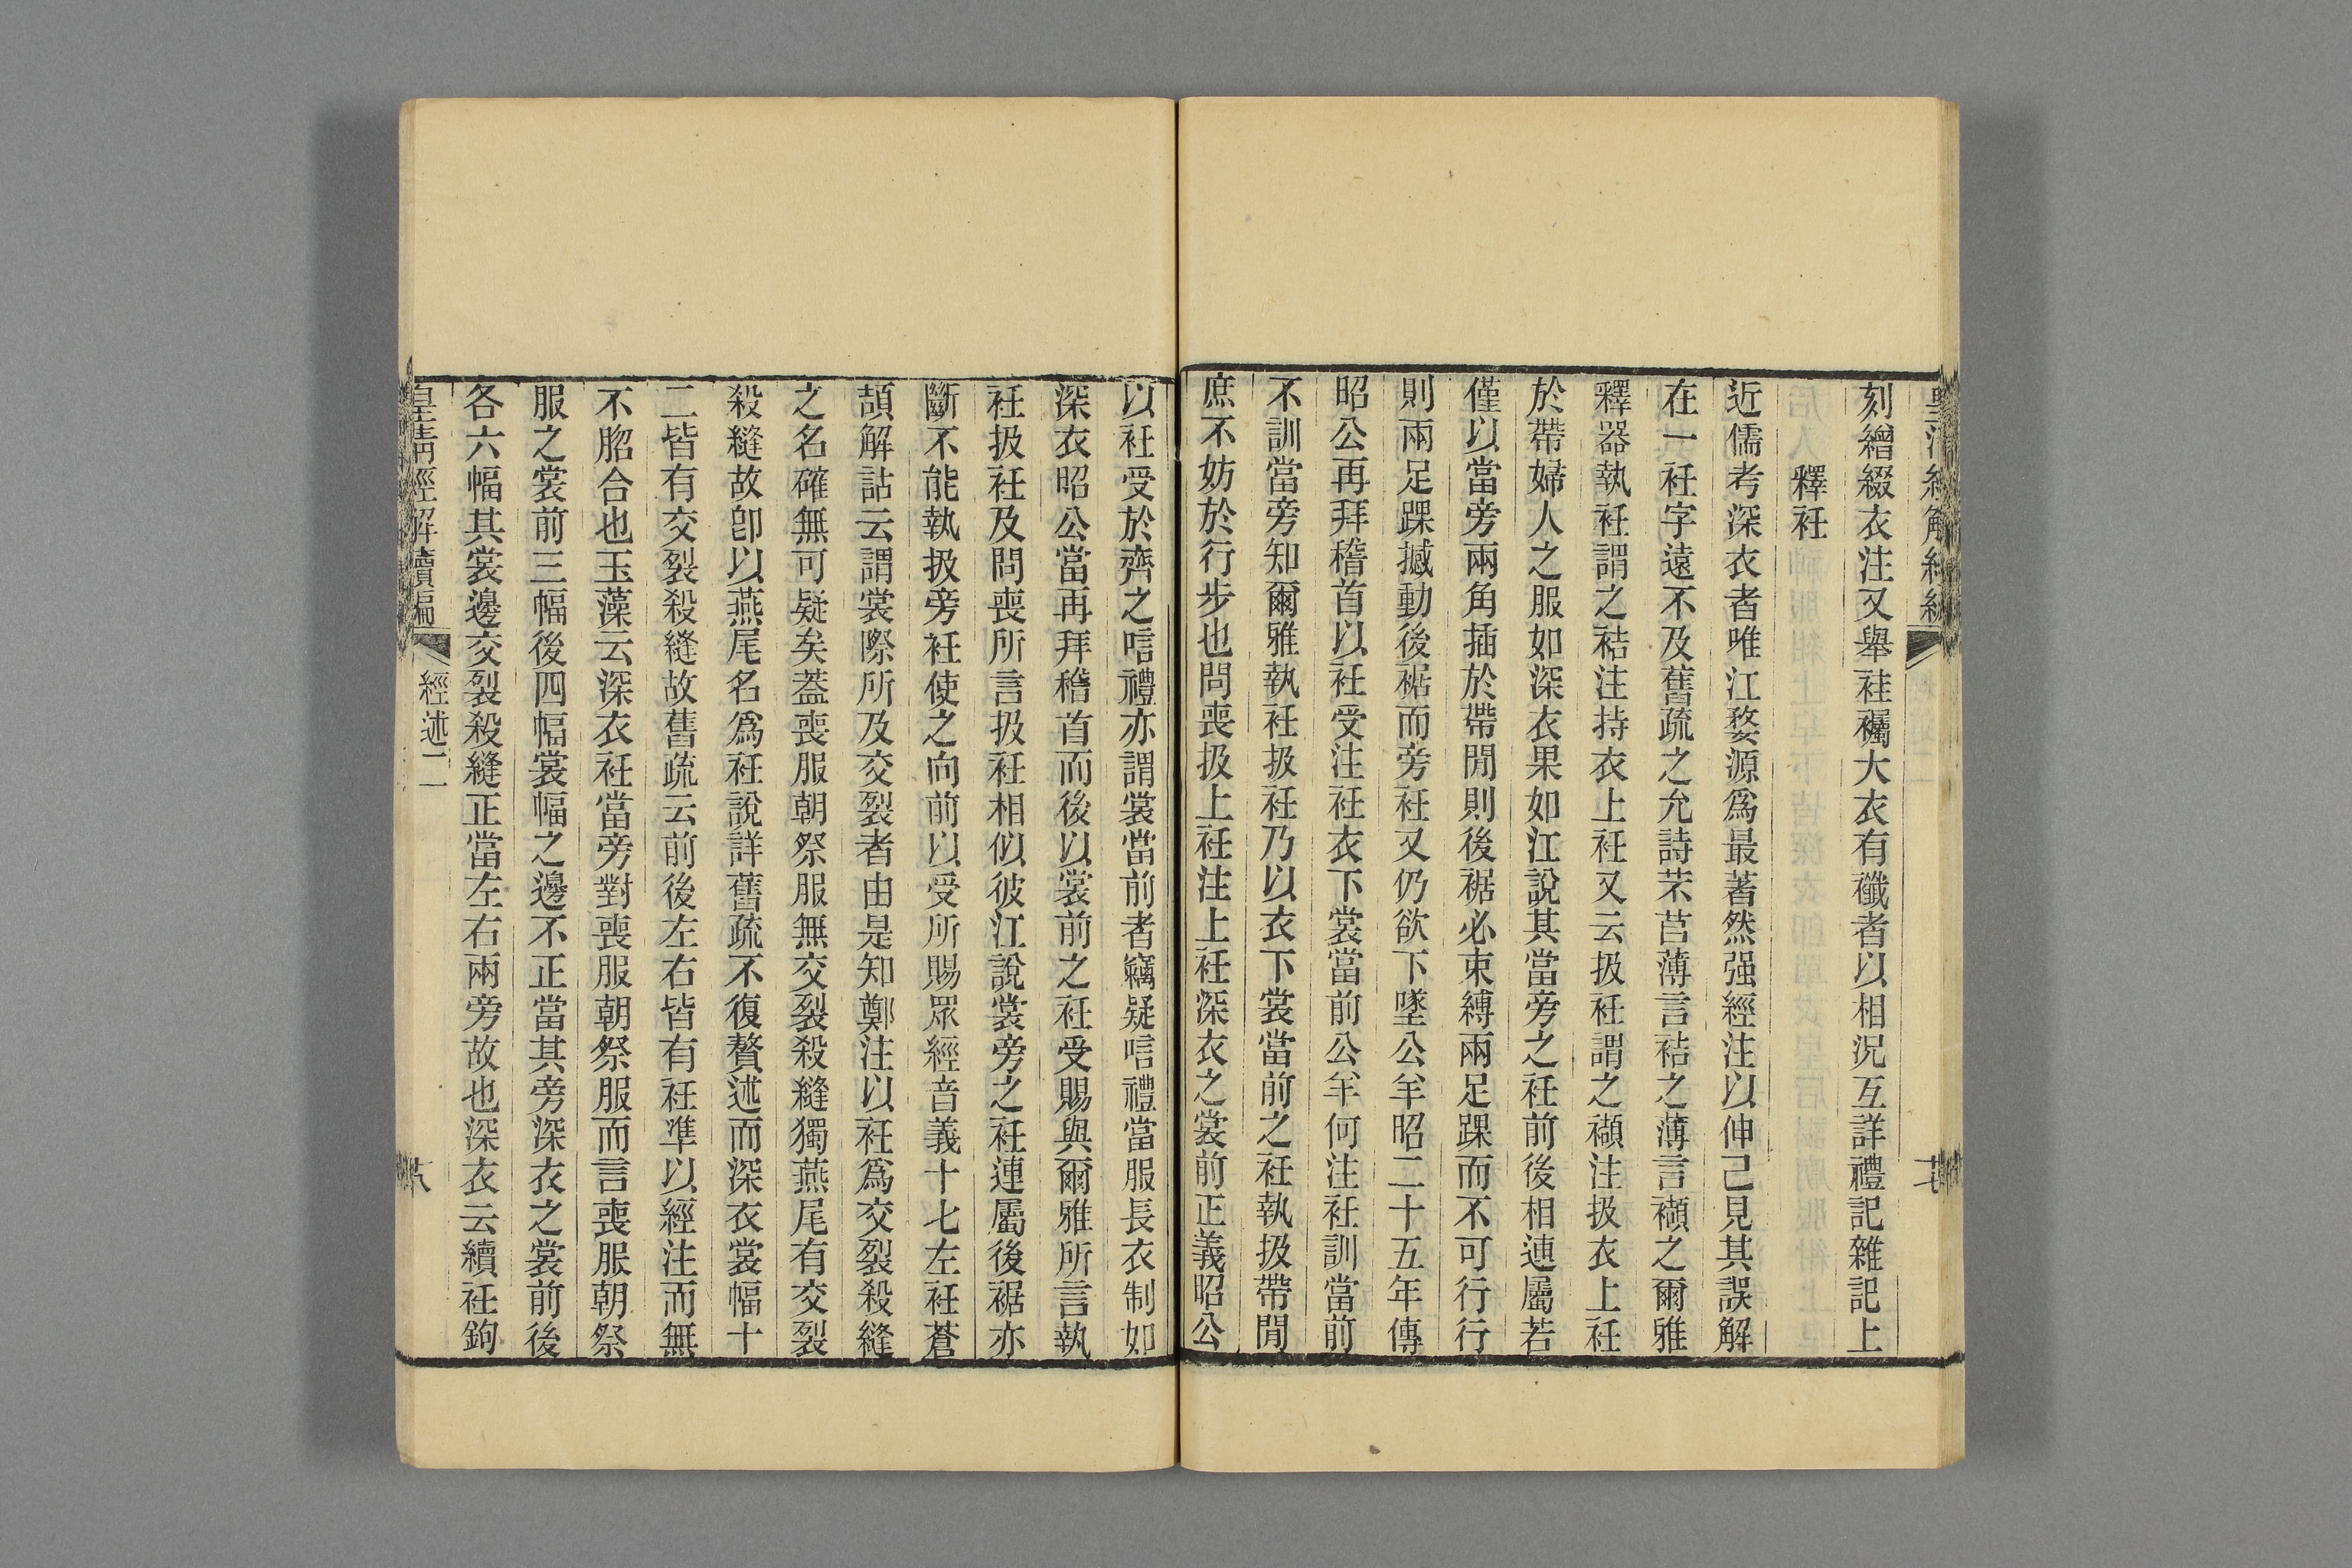 刻繒綴衣注又舉袿襡大衣有襳者以相況互詳禮記雜記上
釋衽
近儒考深衣者唯江婺源爲最著然强經注以伸己見其誤解
在一衽字遠不及舊疏之允詩芣苢薄言袺之薄言襭之爾雅
釋器執衽謂之袺注持衣上衽又云扱衽謂之襭注扱衣上衽
於帶婦人之服如深衣果如江說其當旁之衽前後相連屬若
僅以當旁兩角插於帶閒則後裾必束縛兩足踝而不可行行
則兩足踝撼動後裾而旁衽又仍欲下墜公羊昭二十五年傳
昭公再拜稽首以衽受注衽衣下裳當前公羊何注衽訓當前
不訓當旁知爾雅執衽扱衽乃以衣下裳當前之衽執扱帶閒
庶不妨於行步也問喪扱上衽注上衽深衣之裳前正義昭公
以衽受於齊之唁禮亦謂裳當前者竊疑唁禮當服長衣制如
深衣昭公當再拜稽首而後以裳前之衽受賜與爾雅所言執
衽扱衽及問喪所言扱衽相似彼江說裳旁之衽連屬後裾亦
斷不能執扱旁衽使之向前以受所賜眾經音義十七左衽蒼
頡解詁云謂裳際所及交裂者由是知鄭注以衽爲交裂殺縫
之名確無可疑矣葢喪服朝祭服無交裂殺縫獨燕尾有交裂
殺縫故卽以燕尾名爲衽說詳舊疏不復贅述而深衣裳幅十
二皆有交裂殺縫故舊疏云前後左右皆有衽準以經注而無
不脗合也玉藻云深衣衽當旁對喪服朝祭服而言喪服朝祭
服之裳前三幅後四幅裳幅之邊不正當其旁深衣之裳前後
各六幅其裳邊交裂殺縫正當左右兩旁故也深衣云續衽鉤
皇清經解續編
經述二